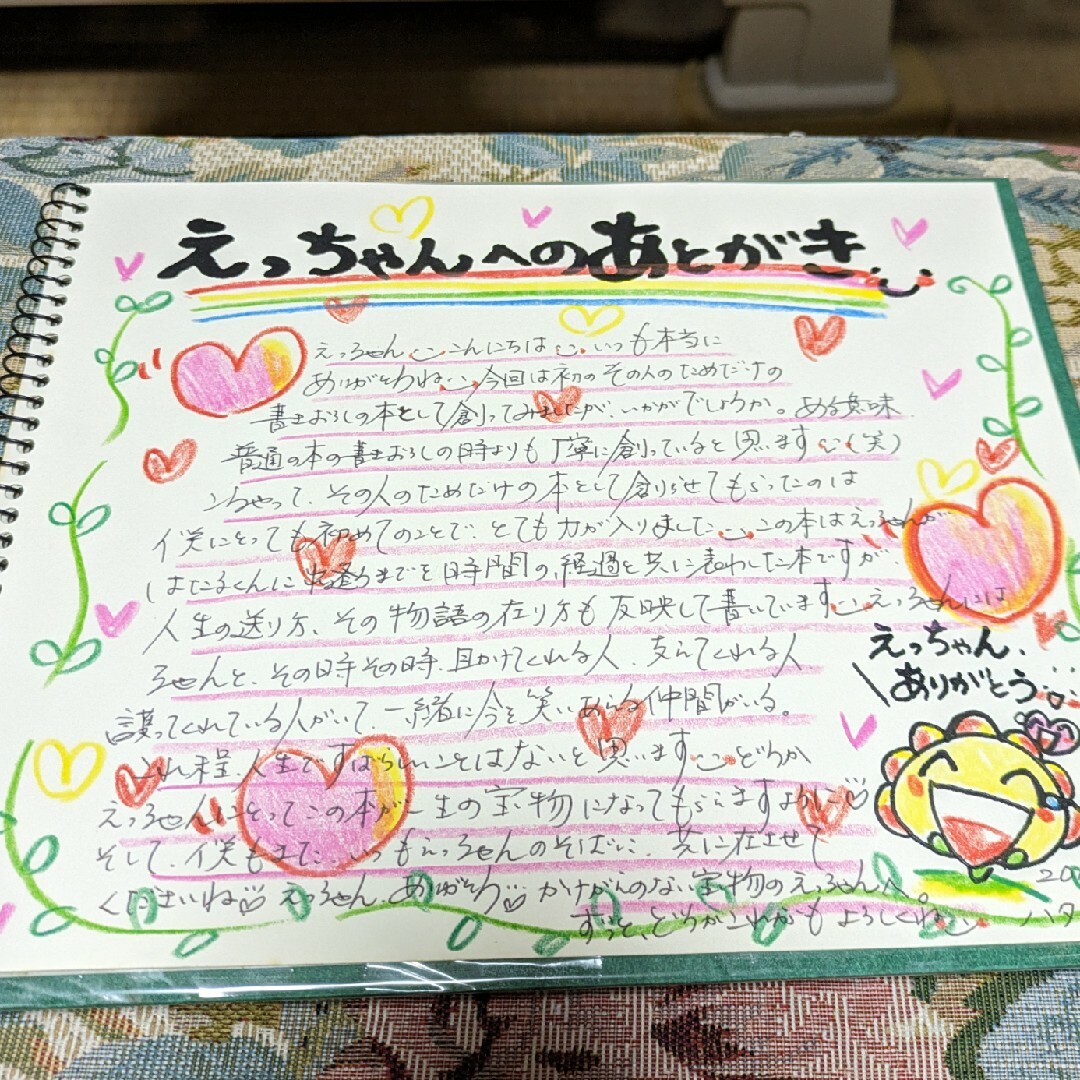 えっちゃんへのあとがき
えっちゃん こんにちは いつも本当に
ありがとうね 今回は初のその人のためだけの
書きおろしの本として創ってみましたが、いかがでしょうか。ある意味
普通の本の書きおろしの時よりも丁寧に創っていると思います(笑)
こうやって、その人のためだけの本として創らせてもらったのは
僕にとっても初めてのことで、とても力が入りました この本はえっちゃんが
はたるくんに までを時間の経過と共に表わした本ですが、
人生の送り方、その物語の在り方も反映して書いています えっちゃんには
ちゃんと、その時その時、助けてくれる人、支えてくれる人
護ってくれている人がいて一緒に今を笑いあえる仲間がいる。
これ程、人生ですばらしいことはないと思います どうか
えっちゃんにとってこの本が一生の宝物になってもらえますように
そして、僕もまた、いつもえっちゃんのそばに、共に在させて
くださいね えっちゃん、ありがとう かけがえのない宝物のえっちゃんへ。
ずっと、どうかこれからもよろしくね
えっちゃん、
ありがとう
20
ハタ